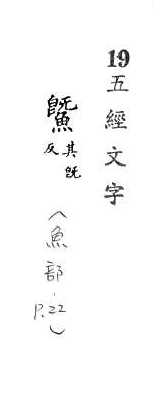 19五經文字
鱀其既反
（魚部，P.22）